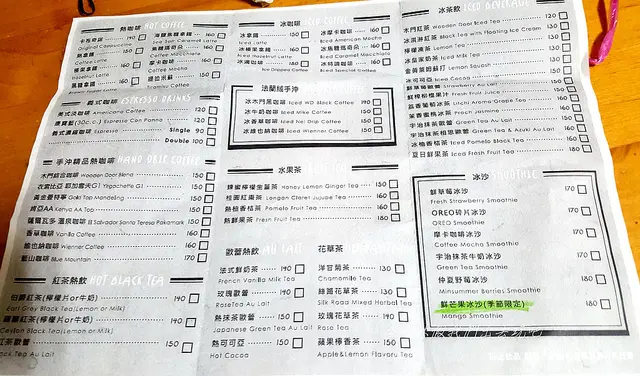 熱咖啡 HOT COFFEE
卡布奇諾 140
Original Cappuccino
熱拿鐵 150
Hot Latte
榛果拿鐵 160
Hazelnut Latte
黑糖拿鐵 160
海鹽焦糖拿鐵 160
焦糖瑪奇朵 160
Caramel Macchiato
摩卡咖啡 160
Coffee Mocha
Tiramisu Coffee
義式咖啡 ESPRESSO DRINKS
美式淡咖啡 Americano Coffee 120
康寶藍(30c.c.) Espresso Con Panna 120
義式濃縮咖啡 Espresso Single 90
Double 100
手沖精品熱咖啡 HAND DRIP COFFEE
木門綜合咖啡 Wooden Door Blend 150
衣索比亞 耶加雪夫G1 Yirgacheffe G1 150
黃金曼特寧 Gold Top Mandeling 150
肯亞AA Kenya AA Top 150
薩爾瓦多 溫泉咖啡 El Salvador Santa Teresa Pakamark 150
香草咖啡 Vanilla Coffee 160
維也納咖啡 Wienner Coffee 160
藍山咖啡 Blue Mountain 150
紅茶熱飲 HOT BLACK TEA
伯爵紅茶(檸檬片or牛奶) 140
Earl Grey Black Tea(Lemon or Milk)
錫蘭紅茶(檸檬片or牛奶) 140
Ceylon Black Tea(Lemon or Milk)
紅茶歐蕾 150
Black Tea Au Lait
冰咖啡 ICED COFFEE
冰拿鐵 150
Iced Latte
冰榛果拿鐵 160
Iced Hazelnut Latte
冰滴咖啡 160
Ice Dripped Coffee
冰摩卡咖啡 160
Iced American Mocha
冰焦糖瑪奇朵 160
Iced Caramel Macchiato
冰特調咖啡 160
Iced Special Coffee
法蘭絨手沖
冰木門黑咖啡 Iced WD Black Coffee 140
冰牛奶咖啡 Iced Milk Coffee 150
冰香草咖啡 Iced Nel Drip Coffee 150
冰維也納咖啡 Iced Wienner Coffee 150
水果茶
蜂蜜檸檬生薑茶 Honey Lemon Ginger Tea 150
桂圓紅棗茶 Longan Claret Jujube Tea 160
熱柚香桔茶 Pomelo Fruit Tea 160
熱鮮果茶 Fresh Fruit Tea 180
歐蕾熱飲 AU LAIT
法式鮮奶茶 140
French Vanilla Milk Tea
玫瑰歐蕾 150
Rose Tea Au Lait
熱抹茶歐蕾 150
Japanese Green Tea Au Lait
熱可可亞 150
Hot Cocoa
花草茶
洋甘菊茶 130
Chamomile Tea
絲路花草茶 130
Silk Road Mixed Herbal Tea
玫瑰花草茶 140
Rose Tea
蘋果檸香茶 150
Apple&Lemon Flavory Tea
冰茶飲 ICED BEVERAGE
木門紅茶 Wooden Door Iced Tea 120
冰淇淋紅茶 Black Tea with Floating Ice Cream 130
檸檬凍茶 Lemon Tea 130
冰皇家奶茶 Iced Milk Tea 130
金黃萊姆蘇打 Lemon Squash
冰可可亞 Iced Cocoa
鮮草莓歐蕾 Strawberry Au Lait
鮮檸柳橙果汁 Fresh Fruit Juice
荔香葡萄冰茶 Litchi Aroma Grape Tea
茉香蜜桃冰茶 Fresh Jasmine Tea
宇治抹茶歐蕾 Green Tea Au Lait
宇治抹茶相思歐蕾 Green Tea & Azuki Au Lait
冰柚香桔茶 Iced Pomelo Black Tea 160
夏日鮮果茶 Iced Fresh Fruit Tea 180
冰沙 SMOOTHIE
鮮草莓冰沙 170
Fresh Strawberry Smoothie
OREO碎片冰沙 170
OREO Smoothie
摩卡咖啡冰沙 170
Coffee Mocha Smoothie
宇治抹茶牛奶冰沙 170
Green Tea Smoothie
仲夏野莓冰沙 180
Minsummer Berries Smoothie
鮮芒果冰沙(季節限定) 180
Mango Smoothie